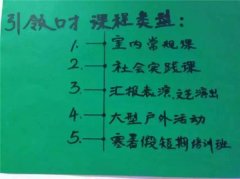 引领口才 课程类型:
1. 室内常规课
2. 社会实践课
3. 汇报表演,文艺演出
4. 大型户外活动
5. 寒暑假短期培训班